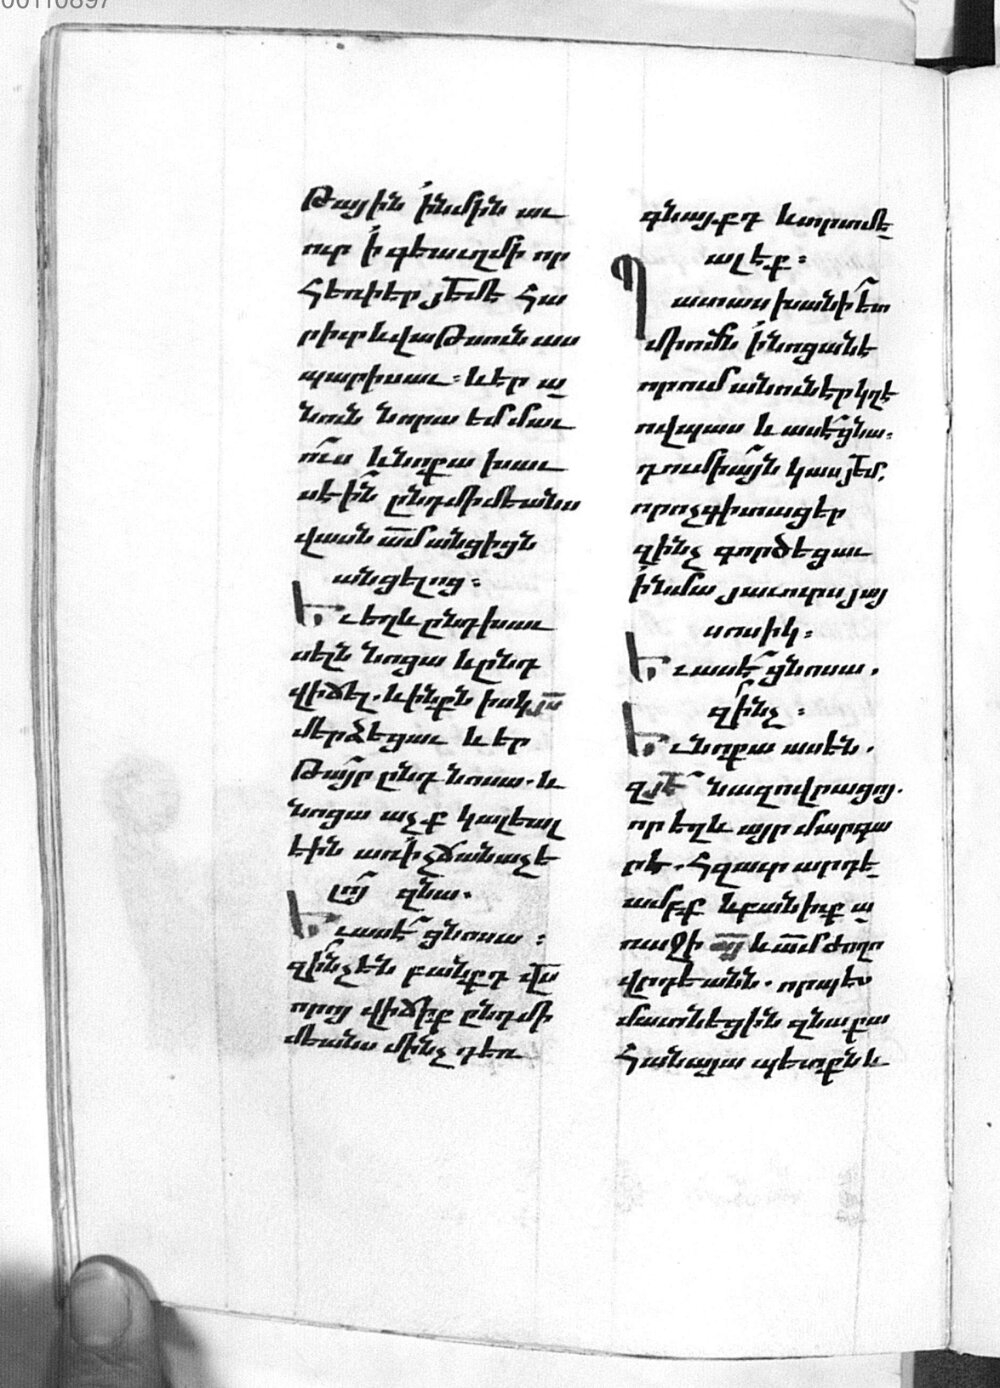 թային ինմին աւ
ուր ի գեաւղմի որ
հեռիէր յէմէ հա
րիւրևվաթսուն աս
պարիսաւ։ ևէր ա
նուն նորա եմմաւ
ուս ևնոքա խաւ
սէին ընդմիմեանս
վասն ամանցիցն
անցելոց։
Եւեղև ընդխաւ
սելն նոցա ևընդ
վիճել. ևինքն իսկ յս
մերձեցաւ և էր
թայր ընդ նոսա. և
նոցա աչք կալեալ
էին առիչճանաչե
լոյ զնա.
Եւասէ ցնոսա։
զինչեն բանքդ վս
որոյ վիճիք ընդմի
մեանս մինչ դեռ
գնայքդ ևտրտմե
ալէք։
Պատասխանի ետ
միոմն ինոցանէ
որում անունէր կղէ
ովպաս և ասէցնա.
դումիայն կասյէմ.
որոչգիտացեր
զինչ գործեցաւ
ինմա յաւուրսյայ
սոսիկ։
Եւասէ ցնոսա.
զինչ։
Եւնոքա ասեն.
զյէ նազովրացոյ.
որ եղև այր մարգա
րէ. հզաւր արդե
ամբք ևբանիւք ա
ռաջի այ և ամ ժողո
վրդեանն. որպէս
մատնեցին զնա քա
հանայա պետքն և